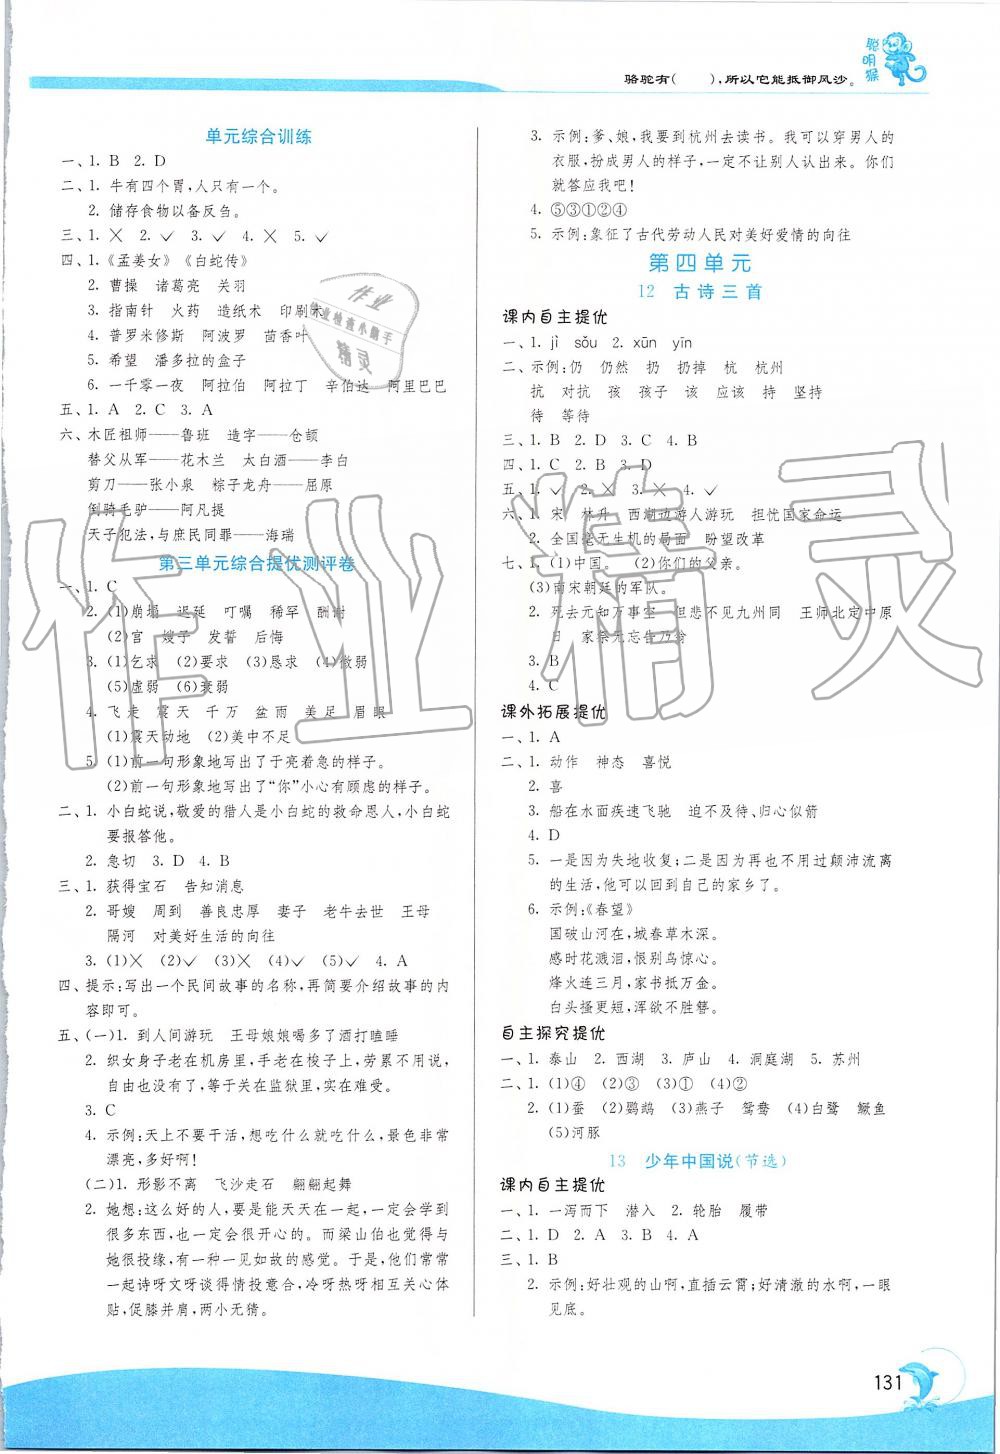 聪明猴
骆驼有(　　),所以它能抵御风沙。
单元综合训练
一、1. B　2. D
二、1. 牛有四个胃,人只有一个。
2. 储存食物以备反刍。
三、1. ✕　2. ✓　3. ✓　4. ✕　5. ✓
四、1.《孟姜女》《白蛇传》
2. 曹操　诸葛亮　关羽
3. 指南针　火药　造纸术　印刷术
4. 普罗米修斯　阿波罗　茴香叶
5. 希望　潘多拉的盒子
6. 一千零一夜　阿拉伯　阿拉丁　辛伯达　阿里巴巴
五、1. A　2. C　3. A
六、木匠祖师——鲁班　造字——仓颉
替父从军——花木兰　太白酒——李白
剪刀——张小泉　粽子龙舟——屈原
倒骑毛驴——阿凡提
天子犯法,与庶民同罪——海瑞
第三单元综合提优测评卷
一、1. C
2. (1)崩塌　迟延　叮嘱　稀罕　酬谢
(2)官　嫂子　发誓　后悔
3. (1)乞求　(2)要求　(3)恳求　(4)微弱
(5)虚弱　(6)衰弱
4. 飞　走　震　天　千　万　盆　雨　美　足　眉　眼
(1)震天动地　(2)美中不足
5. (1)前一句形象地写出了干亮着急的样子。
(2)前一句形象地写出了“你”小心有顾虑的样子。
二、1. 小白蛇说,敬爱的猎人是小白蛇的救命恩人,小白蛇
要报答他。
2. 急切　3. D　4. B
三、1. 获得宝石　告知消息
2. 哥嫂　周到　善良忠厚　妻子　老牛去世　王母
隔河　对美好生活的向往
3. (1)✕　(2)✓　(3)✕　(4)✓　(5)✓　4. A
四、提示:写出一个民间故事的名称,再简要介绍故事的内
容即可。
五、(一)1. 到人间游玩　王母娘娘喝多了酒打瞌睡
2. 织女身子老在机房里,手老在梭子上,劳累不用说,
自由也没有了,等于关在监狱里,实在难受。
3. C
4. 示例:天上不要干活,想吃什么就吃什么,景色非常
漂亮,多好啊!
(二)1. 形影不离　飞沙走石　翩翩起舞
2. 她想:这么好的人,要是能天天在一起,一定会学到
很多东西,也一定会很开心的。而梁山伯也觉得与
她很投缘,有一种一见如故的感觉。于是,他们常常
一起诗呀文呀谈得情投意合,冷呀热呀相互关心体
贴,促膝并肩,两小无猜。
3. 示例:爹、娘,我要到杭州去读书。我可以穿男人的
衣服,扮成男人的样子,一定不让别人认出来。你们
就答应我吧!
4. ⑤③①②④
5. 示例:象征了古代劳动人民对美好爱情的向往
第四单元
12　古诗三首
课内自主提优
一、1. jì　sǒu　2. xūn　yīn
二、示例:仍　仍然　扔　扔掉　杭　杭州
抗　对抗　孩　孩子　该　应该　持　坚持
待　等待
三、1. B　2. D　3. C　4. B
四、1. C　2. B　3. D
五、1. ✓　2. ✕　3. ✕　4. ✓
六、1. 宋　林升　西湖边游人游玩　担忧国家命运
2. 全国毫无生机的局面　盼望改革
七、1. (1)中国。　(2)你们的父亲。
(3)南宋朝廷的军队。
2. 死去元知万事空　但悲不见九州同　王师北定中原
日　家祭无忘告乃翁
3. B
4. C
课外拓展提优
一、1. A
二、1. 动作　神态　喜悦
2. 喜
3. 船在水面疾速飞驰　迫不及待、归心似箭
4. D
5. 一是因为失地收复;二是因为再也不用过颠沛流离
的生活,他可以回到自己的家乡了。
6. 示例:《春望》
国破山河在,城春草木深。
感时花溅泪,恨别鸟惊心。
烽火连三月,家书抵万金。
白头搔更短,浑欲不胜簪。
自主探究提优
一、1. 泰山　2. 西湖　3. 庐山　4. 洞庭湖　5. 苏州
二、1. (1)④　(2)③　(3)①　(4)②
2. (1)蚕　(2)鹦鹉　(3)燕子　鸳鸯　(4)白鹭　鳜鱼
(5)河豚
13　少年中国说(节选)
课内自主提优
一、1. 一泻而下　潜入　2. 轮胎　履带
二、1. D　2. A　3. B　4. A
三、1. B
2. 示例:好壮观的山啊,直插云霄;好清澈的水啊,一眼
见底。
131
作业精灵